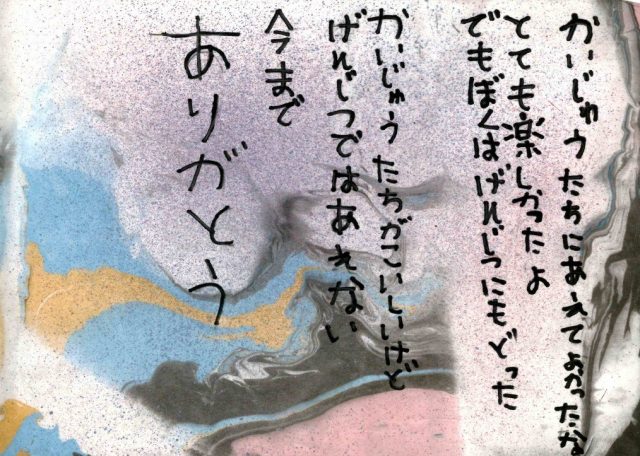 かいじゅうたちにあえてよかったな
とても楽しかったよ
でもぼくはげんじつにもどった
かいじゅうたちがこいしいけど
げんじつではあえない
今まで
ありがとう